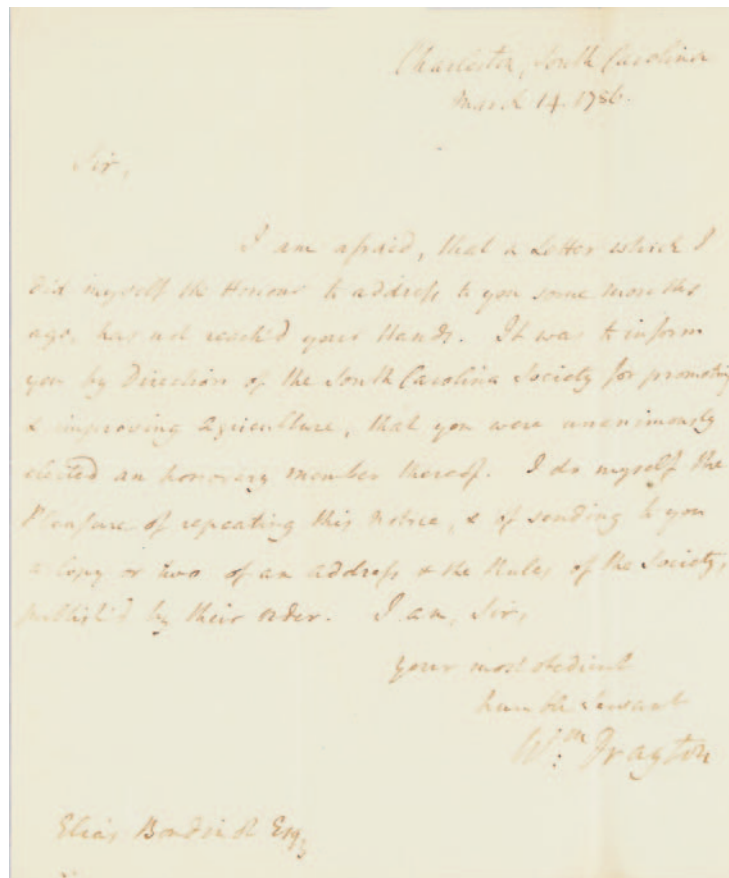 Charleston, South Carolina
March 14. 1786.
Sir,
I am afraid, that a Letter which I
did myself the Honour to address to you some months
ago, has not reach'd your Hands. It was to inform
you by Direction of the South Carolina Society for promoting
& improving Agriculture, that you were unanimously
elected an honorary member thereof. I do myself the
Pleasure of repeating this Notice, & of sending to you
a Copy or two of an address & the Rules of the Society,
publish'd by their order. I am, Sir,
your most obedient
humble Servant
Wm Drayton
Elias Esq